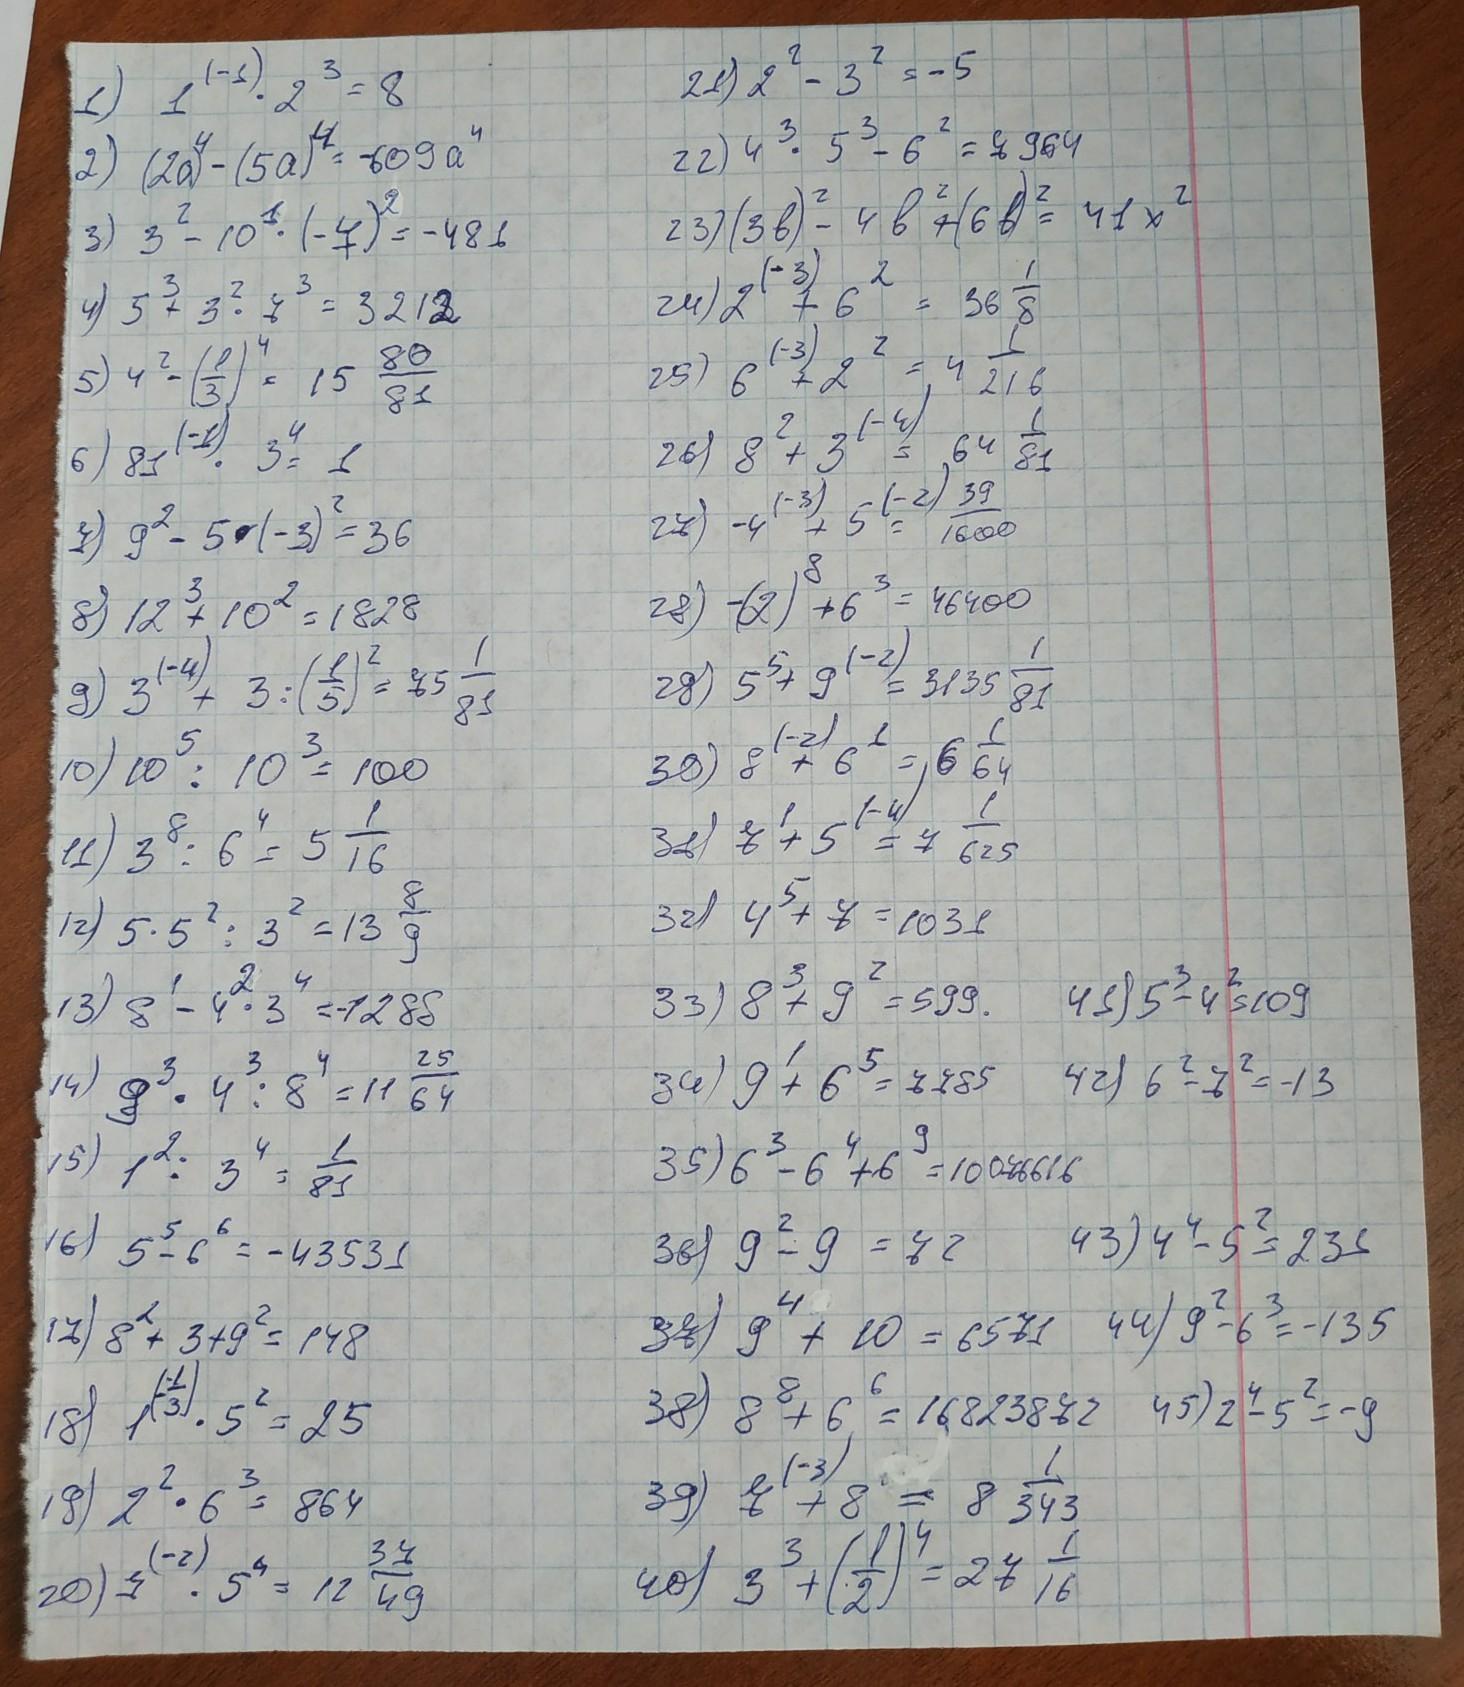 1) 1^(-1) · 2^3 = 8
2) (2a)^4 - (5a)^4 = -609a^4
3) 3^2 - 10^1 · (-7)^2 = -481
4) 5^3 + 3^2 · 7^3 = 3212
5) 4^2 - (1/3)^4 = 15 80/81
6) 81^(-1) · 3^4 = 1
7) 9^2 - 5 · (-3)^2 = 36
8) 12^3 + 10^2 = 1828
9) 3^(-4) + 3 : (1/5)^2 = 75 1/81
10) 10^5 : 10^3 = 100
11) 3^8 : 6^4 = 5 1/16
12) 5 · 5^2 : 3^2 = 13 8/9
13) 8^1 - 4^2 · 3^4 = -1288
14) 9^3 · 4^3 : 8^4 = 11 25/64
15) 1^2 : 3^4 = 1/81
16) 5^5 - 6^6 = -43531
17) 8^2 + 3 + 9^2 = 148
18) 1^(-1/3) · 5^2 = 25
19) 2^2 · 6^3 = 864
20) 7^(-2) · 5^4 = 12 37/49
21) 2^2 - 3^2 = -5
22) 4^3 · 5^3 - 6^2 = 7964
23) (3b)^2 - 4b^2 + (6b)^2 = 41x^2
24) 2^(-3) + 6^2 = 36 1/8
25) 6^(-3) + 2^2 = 4 1/216
26) 8^2 + 3^(-4) = 64 1/81
27) -4^(-3) + 5^(-2) = 39/1600
28) -(2)^8 + 6^3 = 46400
29) 5^5 + 9^(-2) = 3135 1/81
30) 8^(-2) + 6^1 = 6 1/64
31) 7^1 + 5^(-4) = 7 1/625
32) 4^5 + 7 = 1031
33) 8^3 + 9^2 = 599.
34) 9^1 + 6^5 = 7785
35) 6^3 - 6^4 + 6^9 = 10076616
36) 9^2 - 9 = 72
37) 9^4 + 10 = 6571
38) 8^8 + 6^6 = 16823872
39) 7^(-3) + 8 = 8 1/343
40) 3^3 + (1/2)^4 = 27 1/16
41) 5^3 - 4^2 = 109
42) 6^2 - 7^2 = -13
43) 4^4 - 5^2 = 231
44) 9^2 - 6^3 = -135
45) 2^4 - 5^2 = -9